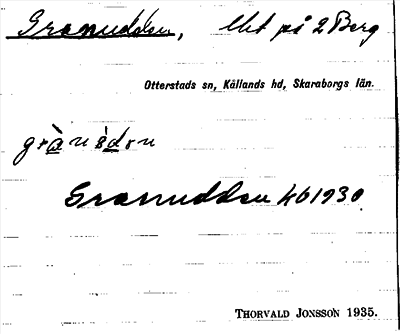 Granudden, lht på 2 Berg
Otterstads sn, Kållands hd, Skaraborgs län.
Granudden 1930
THORVALD JONSSON 1935.